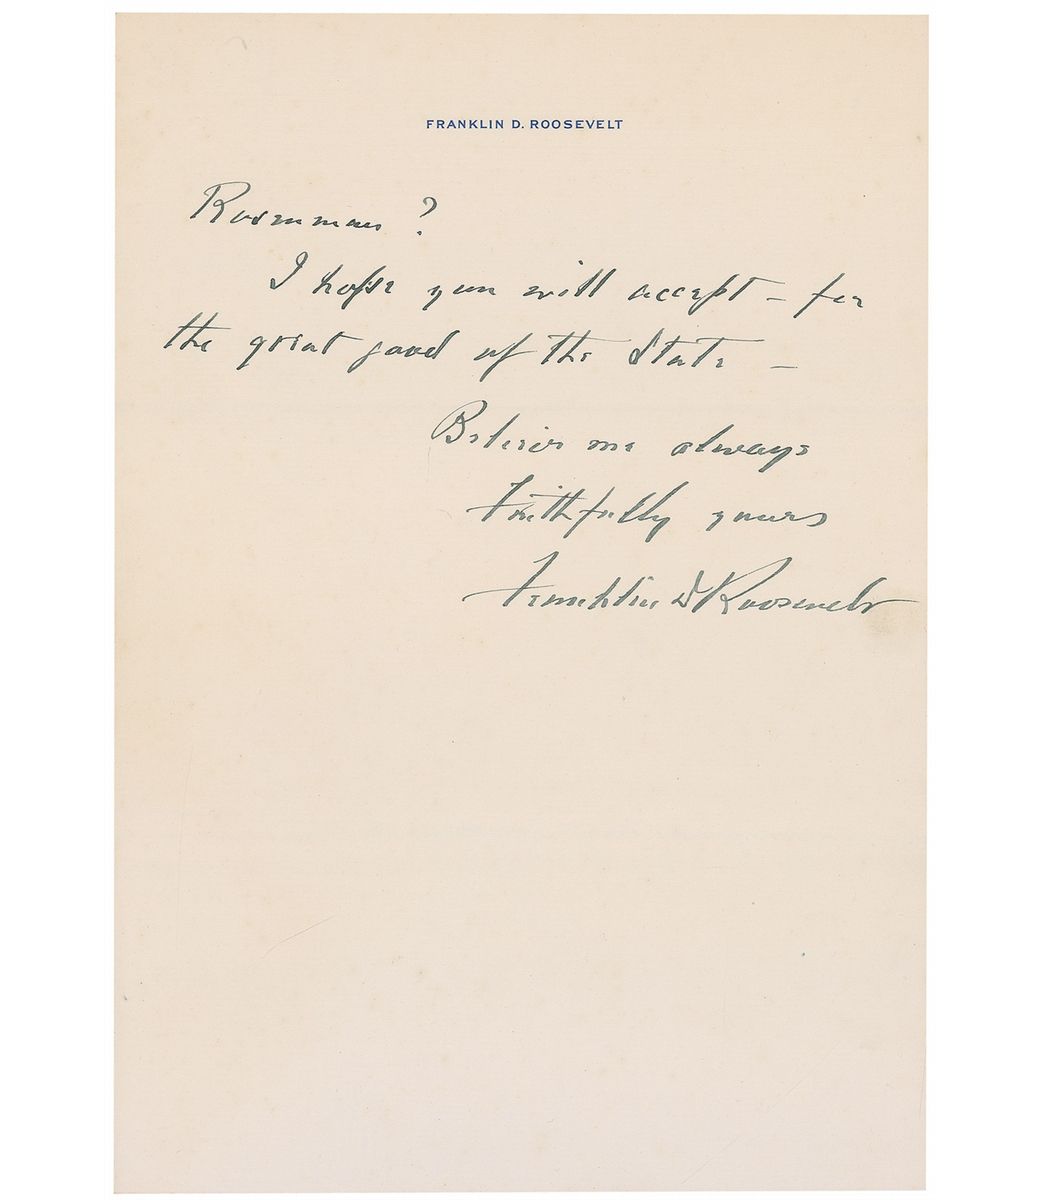 FRANKLIN D. ROOSEVELT
Rosenman ?
I hope you will accept - for
the great good of the State -
Believe me always
Faithfully yours
Franklin D Roosevelt